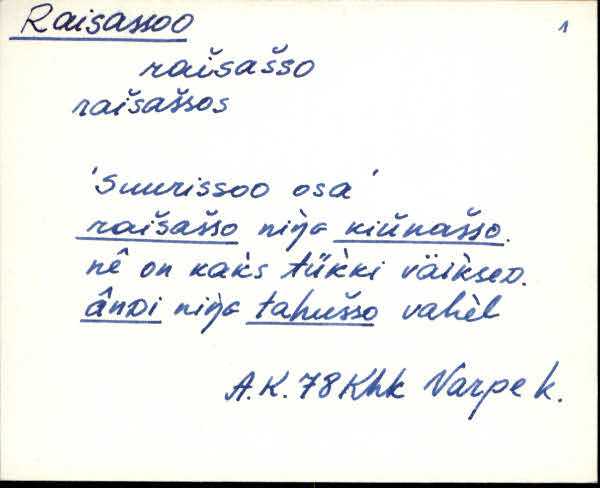 Raisassoo 1
raišašso
raišašsos
'Suurissoo osa'
raišašso niŋ̀G kiŭnašso.
nê on kaks tükki väiksed.
ânDi niŋ̀G tahušso vahèl
A.K. 78 Khk Varpe k.